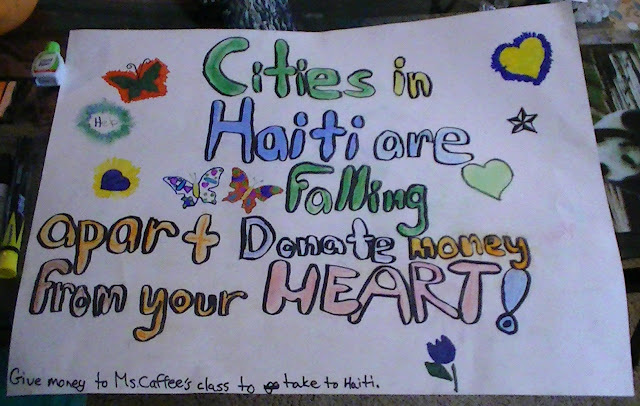 Cities in
Haiti are
Falling
apart Donate money
from your HEART!
Give money to Ms Caffee's class to take to Haiti.